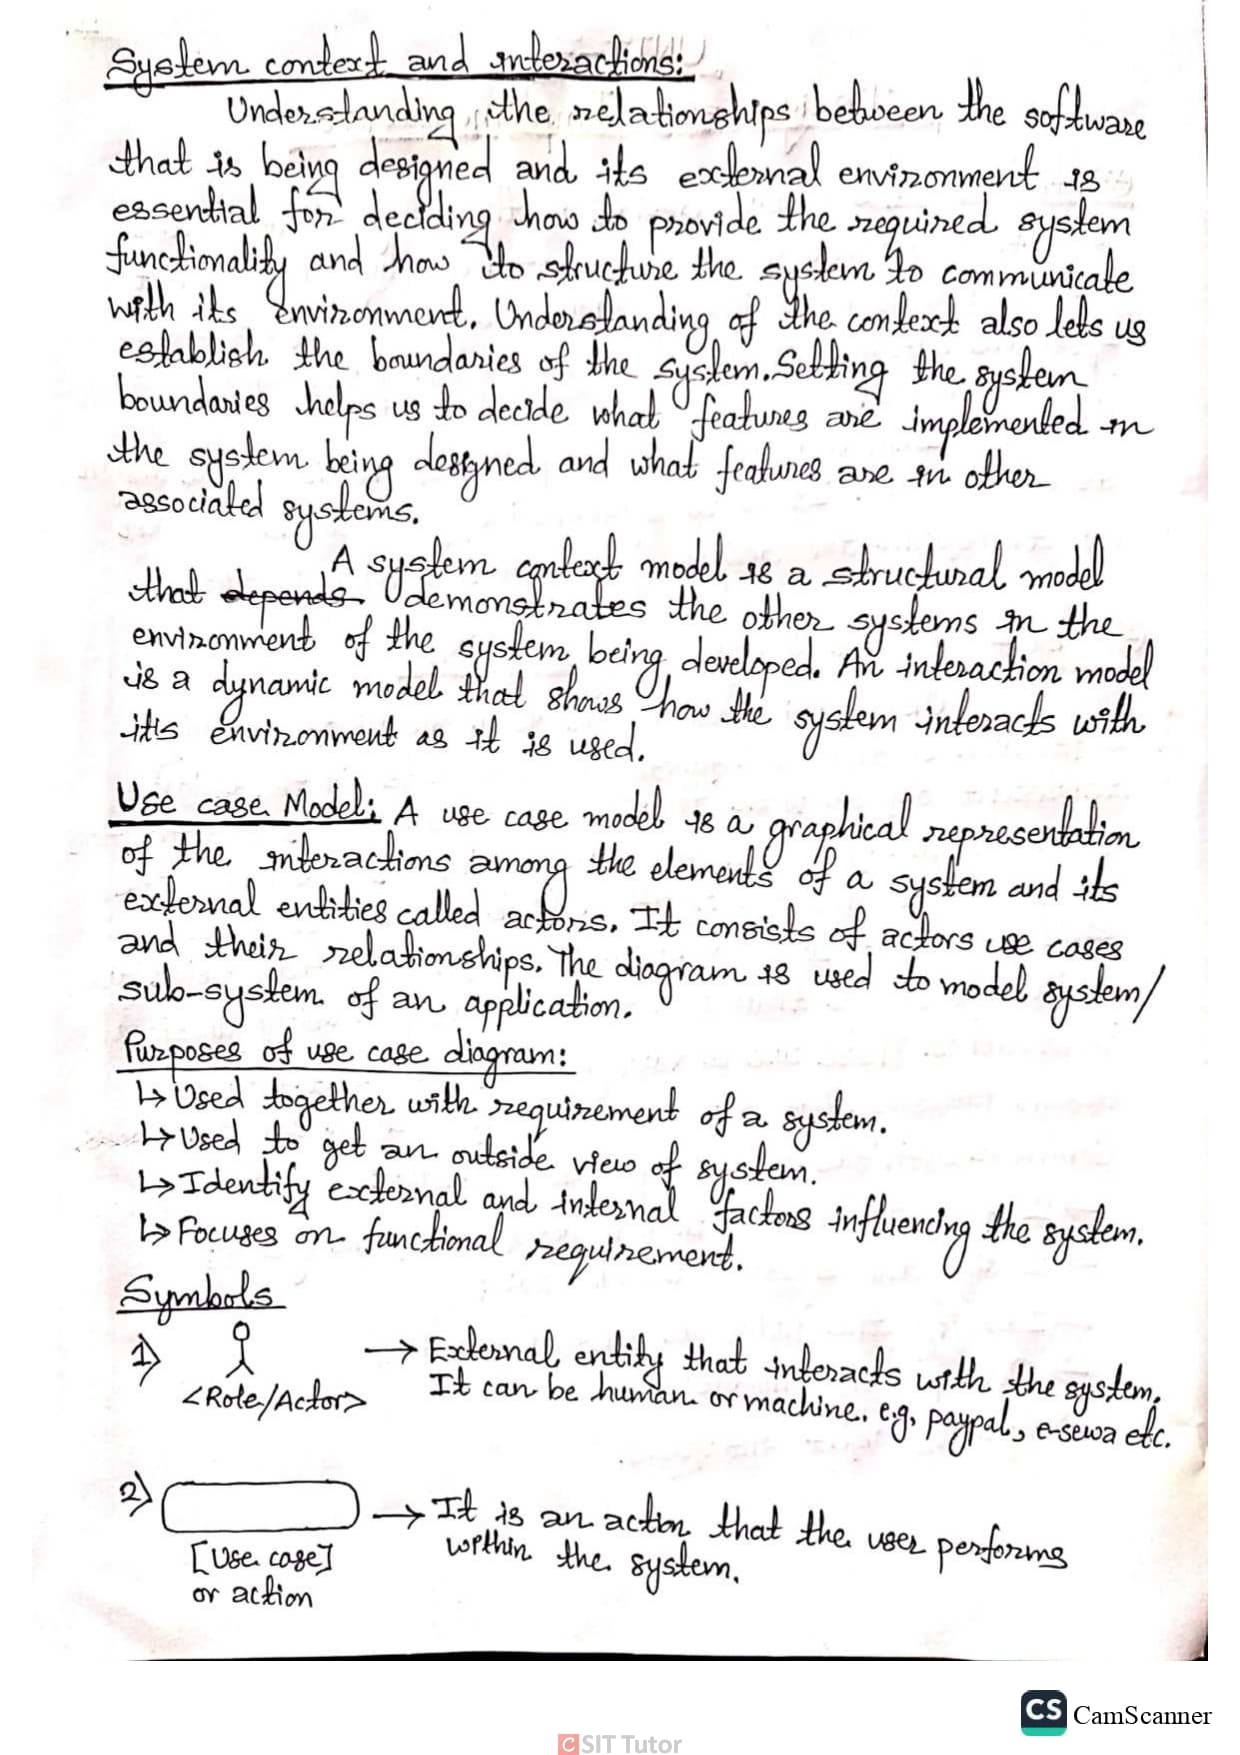 System context and interactions:
Understanding the relationships between the software
that is being designed and its external environment is
essential for deciding how to provide the required system
functionality and how to structure the system to communicate
with its environment. Understanding of the context also lets us
establish the boundaries of the system. Setting the system
boundaries helps us to decide what features are implemented in
the system being designed and what features are in other
associated systems.
A system context model is a structural model
that depends demonstrates the other systems in the
environment of the system being developed. An interaction model
is a dynamic model that shows how the system interacts with
its environment as it is used.
Use case Model: A use case model is a graphical representation
of the interactions among the elements of a system and its
external entities called actors. It consists of actors use cases
and their relationships. The diagram is used to model system/
sub-system of an application.
Purposes of use case diagram:
↳ Used together with requirement of a system.
↳ Used to get an outside view of system.
↳ Identify external and internal factors influencing the system.
↳ Focuses on functional requirement.
Symbols
1)
<Role/Actor>
→ External entity that interacts with the system.
It can be human or machine. e.g. paypal, e-sewa etc.
2)
[Use case]
or action
→ It is an action that the user performs
within the system.
CS CamScanner
CSIT Tutor